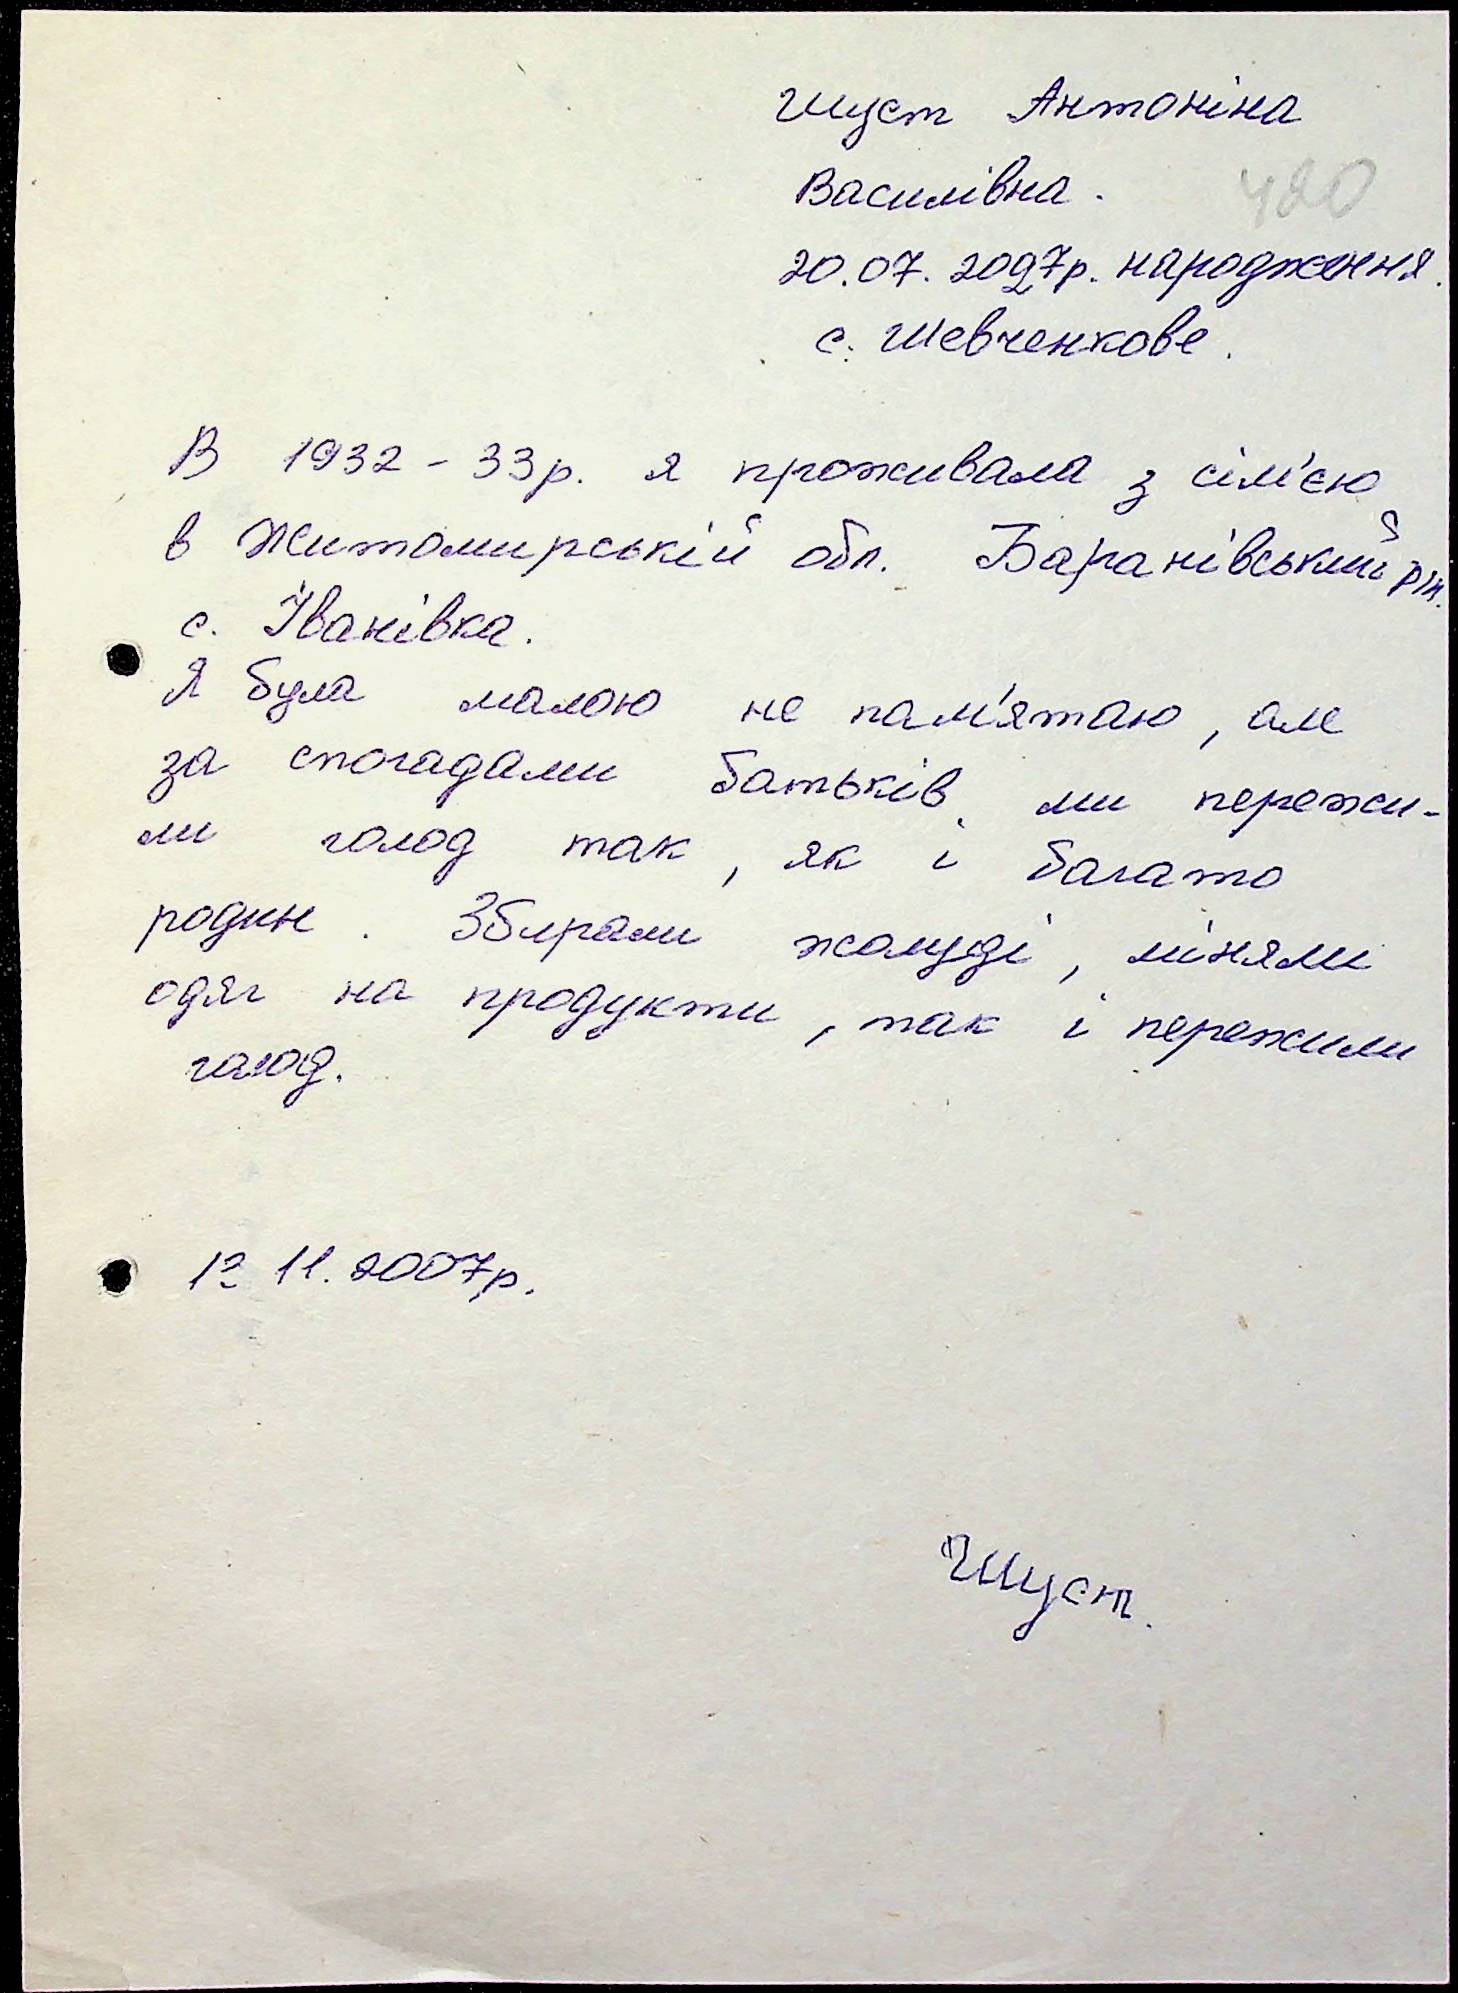 Шуст Антоніна
Василівна.
420
20.07.2027р. народження.
с. Шевченкове.
В 1932-33р. я проживала з сім'єю
в Житомирській обл. Баранівський р-н.
с. Іванівка.
Я була малою не пам'ятаю, але
за спогадами батьків, ми пережи-
ли голод так, як і багато
родин. Збирали жолуді, міняли
одяг на продукти, так і пережили
голод.
11.2007р.
Шуст.